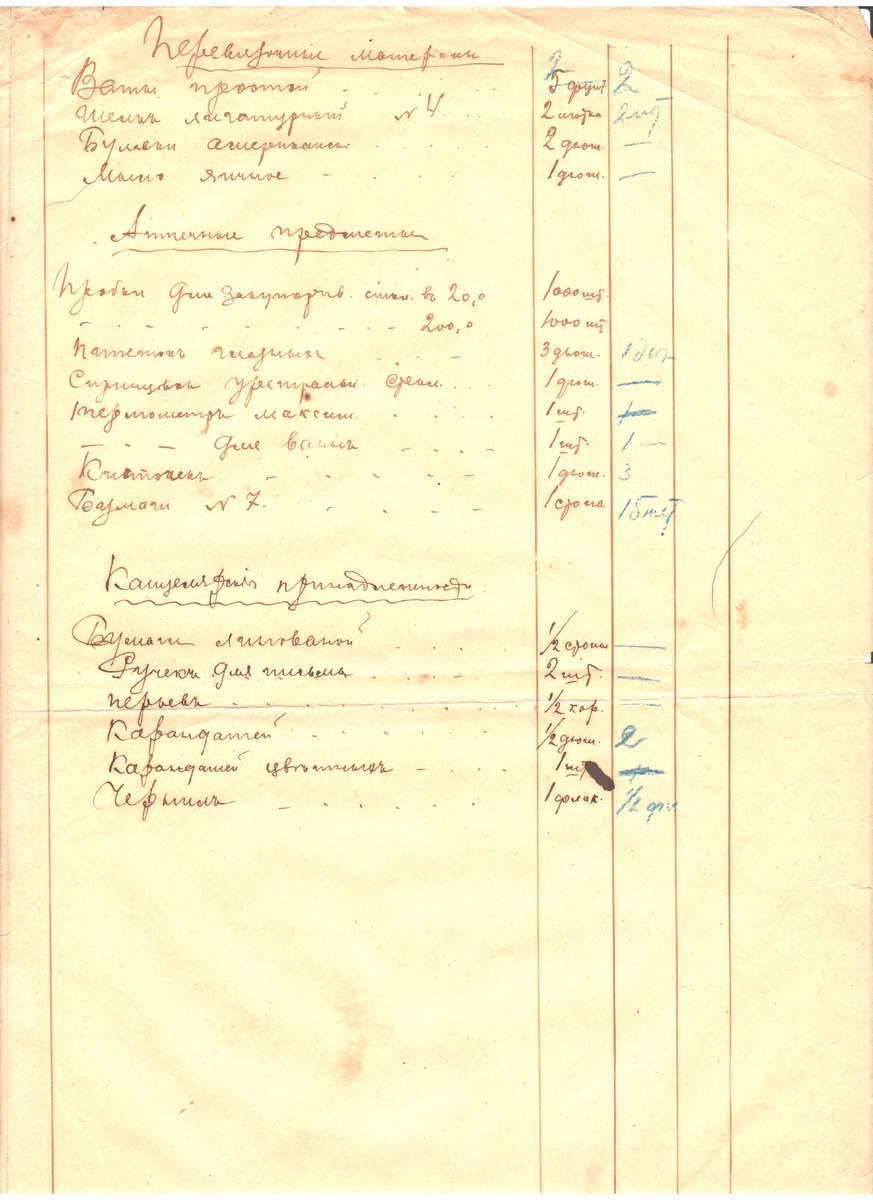 Перевязочные матерiалы
Ваты простой 5 фунт 2 2
Шелкъ лигатурный N 4 2 мотка 2 шт
Булавки американск 2 дюж. —
Мыло яичное 1 дюж. —
Аптечные предметы
Пробки для закупорив. сткл. въ 20,0 1000 шт.
" " " " " 200,0 1000 шт
Пипетокъ глазныхъ 3 дюж. 1 дюж
Спринцовки уретральн. стекл. 1 дюж. —
Термометръ максим. 1 шт. 1
— " — для ванны 1 шт. 1 —
Кисточекъ 1 дюж. 3
Бумаги N 7. 1 стопа
Канцелярскiя принадлежности
Бумаги линованой 1/2 стопы —
Ручекъ для письма 2 шт. —
перьевъ 1/2 кор. —
Карандашей 1/2 дюж. 2
Карандашей цвѣтныхъ 1 шт
Чернилъ 1 флак. 1/2 фл